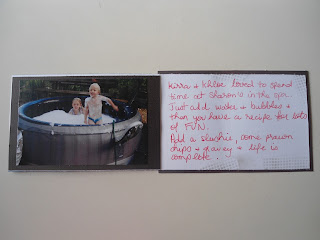 Kirra + Khloe loved to spend
time at Sharon's in the spa.
Just add water + bubbles +
then you have a recipe for lots
of FUN.
Add a slushie, some prawn
chips + gravey + life is
complete.